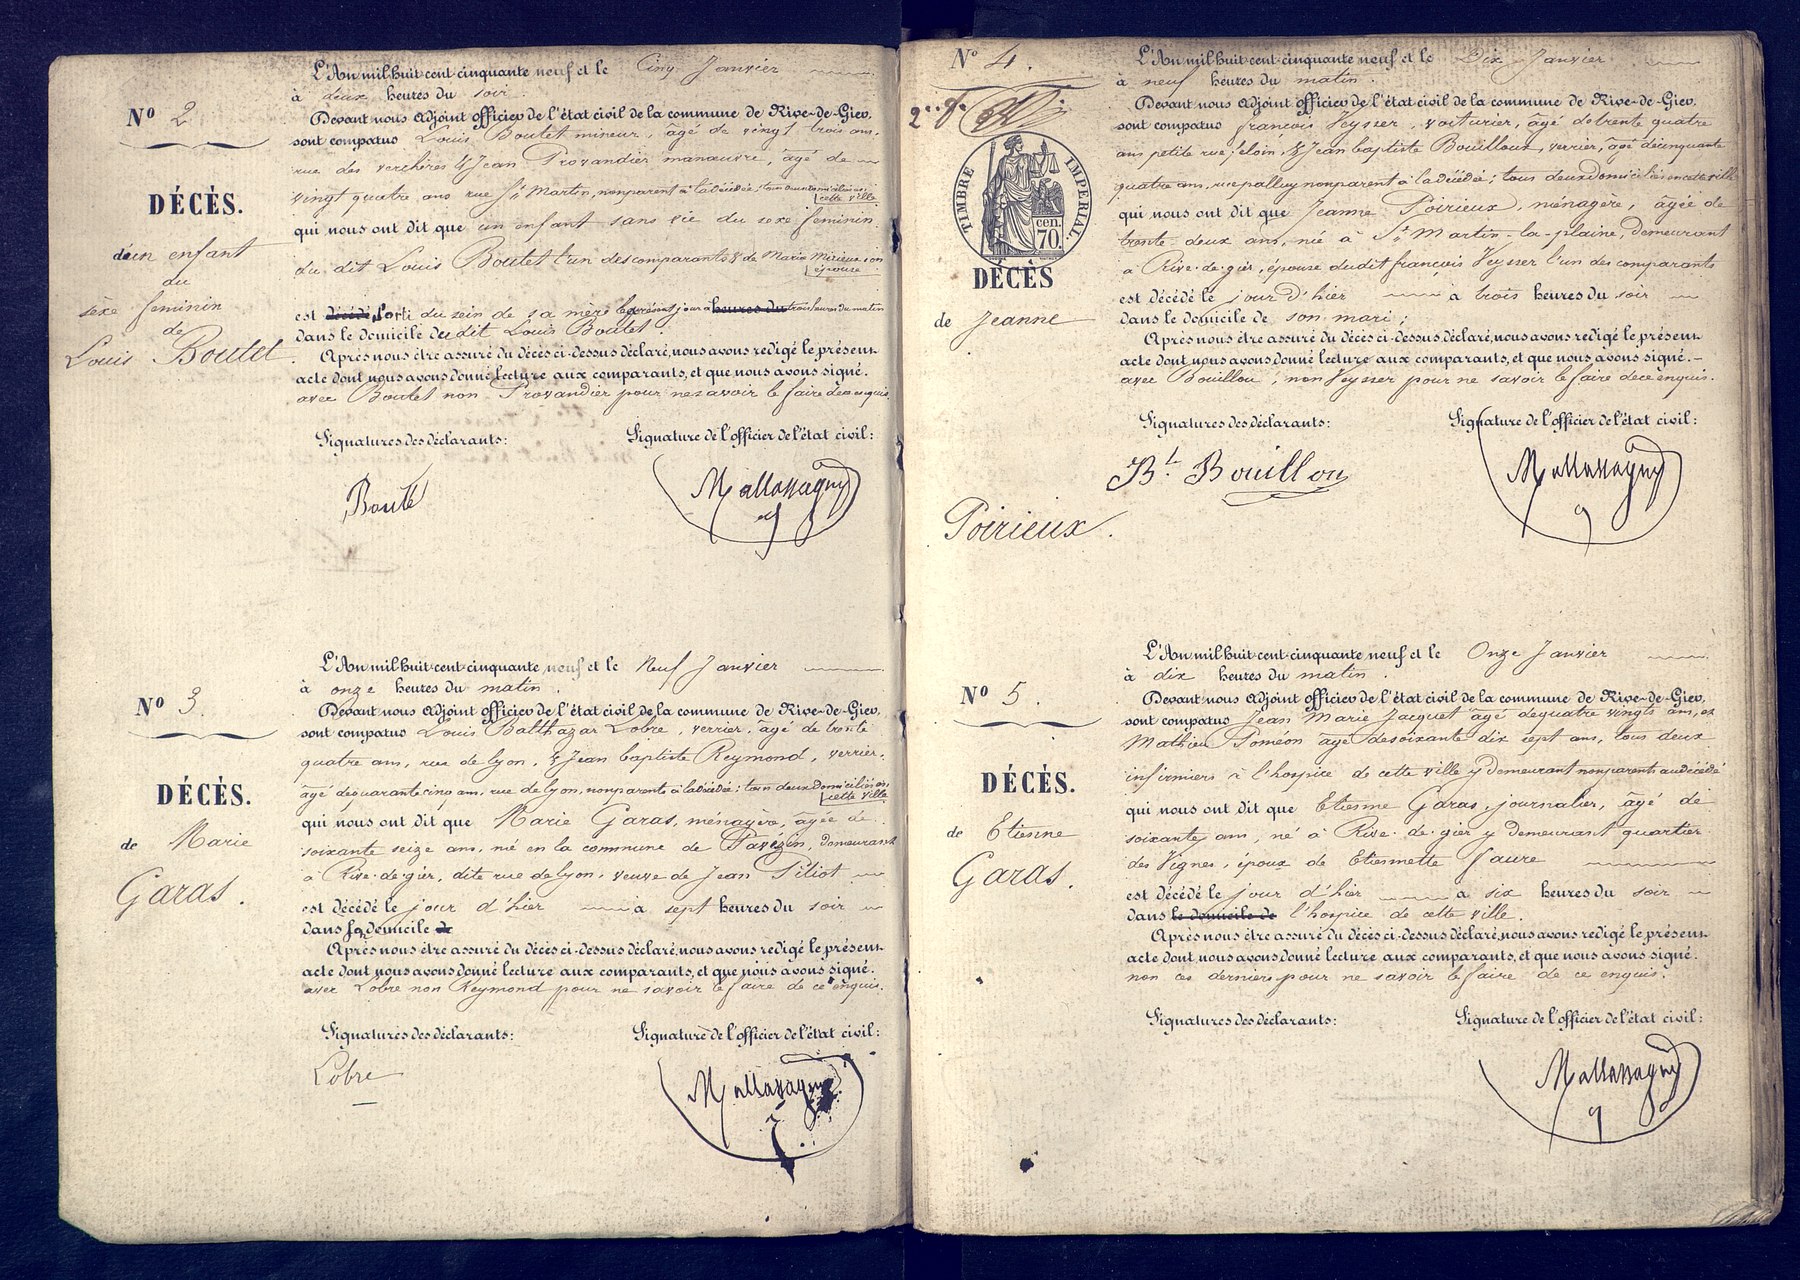 L'An mil huit cent cinquante neuf et le Cinq Janvier
à deux heures du soir.
Nº 2
Devant nous Adjoint officier de l'état civil de la commune de Rive-de-Gier,
sont comparus Louis Boutet mineur, âgé de vingt trois ans,
rue des verchères & Jean Provandier manœuvre, âgé de
vingt quatre ans rue St Martin, non parent à la décédée; tous deux domiciliés en
cette ville
DÉCÈS.
qui nous ont dit que un enfant sans vie du sexe feminin
d'un enfant
du dit Louis Boutet l'un des comparants & de Marie Mirieux son
épouse
du
sèxe feminin
est décédé sorti du sein de sa mère le présent jour à heures du trois heures du matin
de
dans le domicile de du dit Louis Boutet.
Louis Boutet
Après nous être assuré du décès ci-dessus déclaré, nous avons redigé le présent
acte dont nous avons donné lecture aux comparants, et que nous avons signé.
avec Boutet non Provandier pour ne savoir le faire de ce enquis.
Signatures des déclarants:
Signature de l'officier de l'état civil:
Bouté
Mallassagny
L'An mil huit cent cinquante neuf et le Neuf Janvier
à onze heures du matin.
Nº 3.
Devant nous Adjoint officier de l'état civil de la commune de Rive-de-Gier,
sont comparus Louis Balthazar Lobre, verrier, âgé de trente
quatre ans, rue de lyon, & Jean baptiste Reymond, verrier,
âgé de quarante cinq ans, rue de lyon, non parents à la décédée; tous deux domiciliés en
cette ville
DÉCÈS.
qui nous ont dit que Marie Garas, ménagère, âgée de
de Marie
soixante seize ans, né en la commune de Pavézin, demeurant
à Rive-de-gier, dite rue de lyon, veuve de Jean Piliot
Garas.
est décédé le jour d'hier à sept heures du soir
dans son domicile de
Après nous être assuré du décès ci-dessus déclaré, nous avons redigé le présent
acte dont nous avons donné lecture aux comparants, et que nous avons signé.
avec Lobre non Reymond pour ne savoir le faire de ce enquis.
Signatures des déclarants:
Signature de l'officier de l'état civil:
Lobre
Mallassagny
Nº 4.
L'An mil huit cent cinquante neuf et le Dix Janvier
à neuf heures du matin.
Devant nous Adjoint officier de l'état civil de la commune de Rive-de-Gier,
sont comparus françois Veysser, voiturier, âgé de trente quatre
ans petite rue féloin, & Jean baptiste Bouilloux, verrier, âgé de cinquante
quatre ans, rue palluy non parent à la décédée; tous deux domiciliés en cette ville
TIMBRE IMPÉRIAL.
cen.
70.
qui nous ont dit que Jeanne Poirieux, ménagère, âgée de
trente-deux ans, né à St Martin-la-plaine, demeurant
à Rive-de-gier, épouse du dit françois Veysser l'un des comparants
DÉCÈS
est décédé le jour d'hier à trois heures du soir
de Jeanne
dans le domicile de son mari;
Après nous être assuré du décès ci-dessus déclaré, nous avons redigé le présent
acte dont nous avons donné lecture aux comparants, et que nous avons signé.
avec Bouillou, non Veysser pour ne savoir le faire de ce enquis.
Signatures des déclarants:
Signature de l'officier de l'état civil:
Bt. Bouillou
Mallassagny
Poirieux.
L'An mil huit cent cinquante neuf et le Onze Janvier
à dix heures du matin.
Nº 5.
Devant nous Adjoint officier de l'état civil de la commune de Rive-de-Gier,
sont comparus Jean Marie Jacquet âgé de quatre vingts ans, et
Mathieu Poméon âgé de soixante dix sept ans, tous deux
infirmiers à l'hospice de cette ville y demeurant non parents au décédé
DÉCÈS.
qui nous ont dit que Etienne Garas, journalier, âgé de
de Etienne
soixante ans, né à Rive-de-gier y demeurant quartier
des Vignes, époux de Etiennette faure
Garas.
est décédé le jour d'hier à six heures du soir
dans le domicile de l'hospice de cette ville.
Après nous être assuré du décès ci-dessus déclaré, nous avons redigé le présent
acte dont nous avons donné lecture aux comparants, et que nous avons signé.
non ces derniers pour ne savoir le faire de ce enquis.
Signatures des déclarants:
Signature de l'officier de l'état civil:
Mallassagny